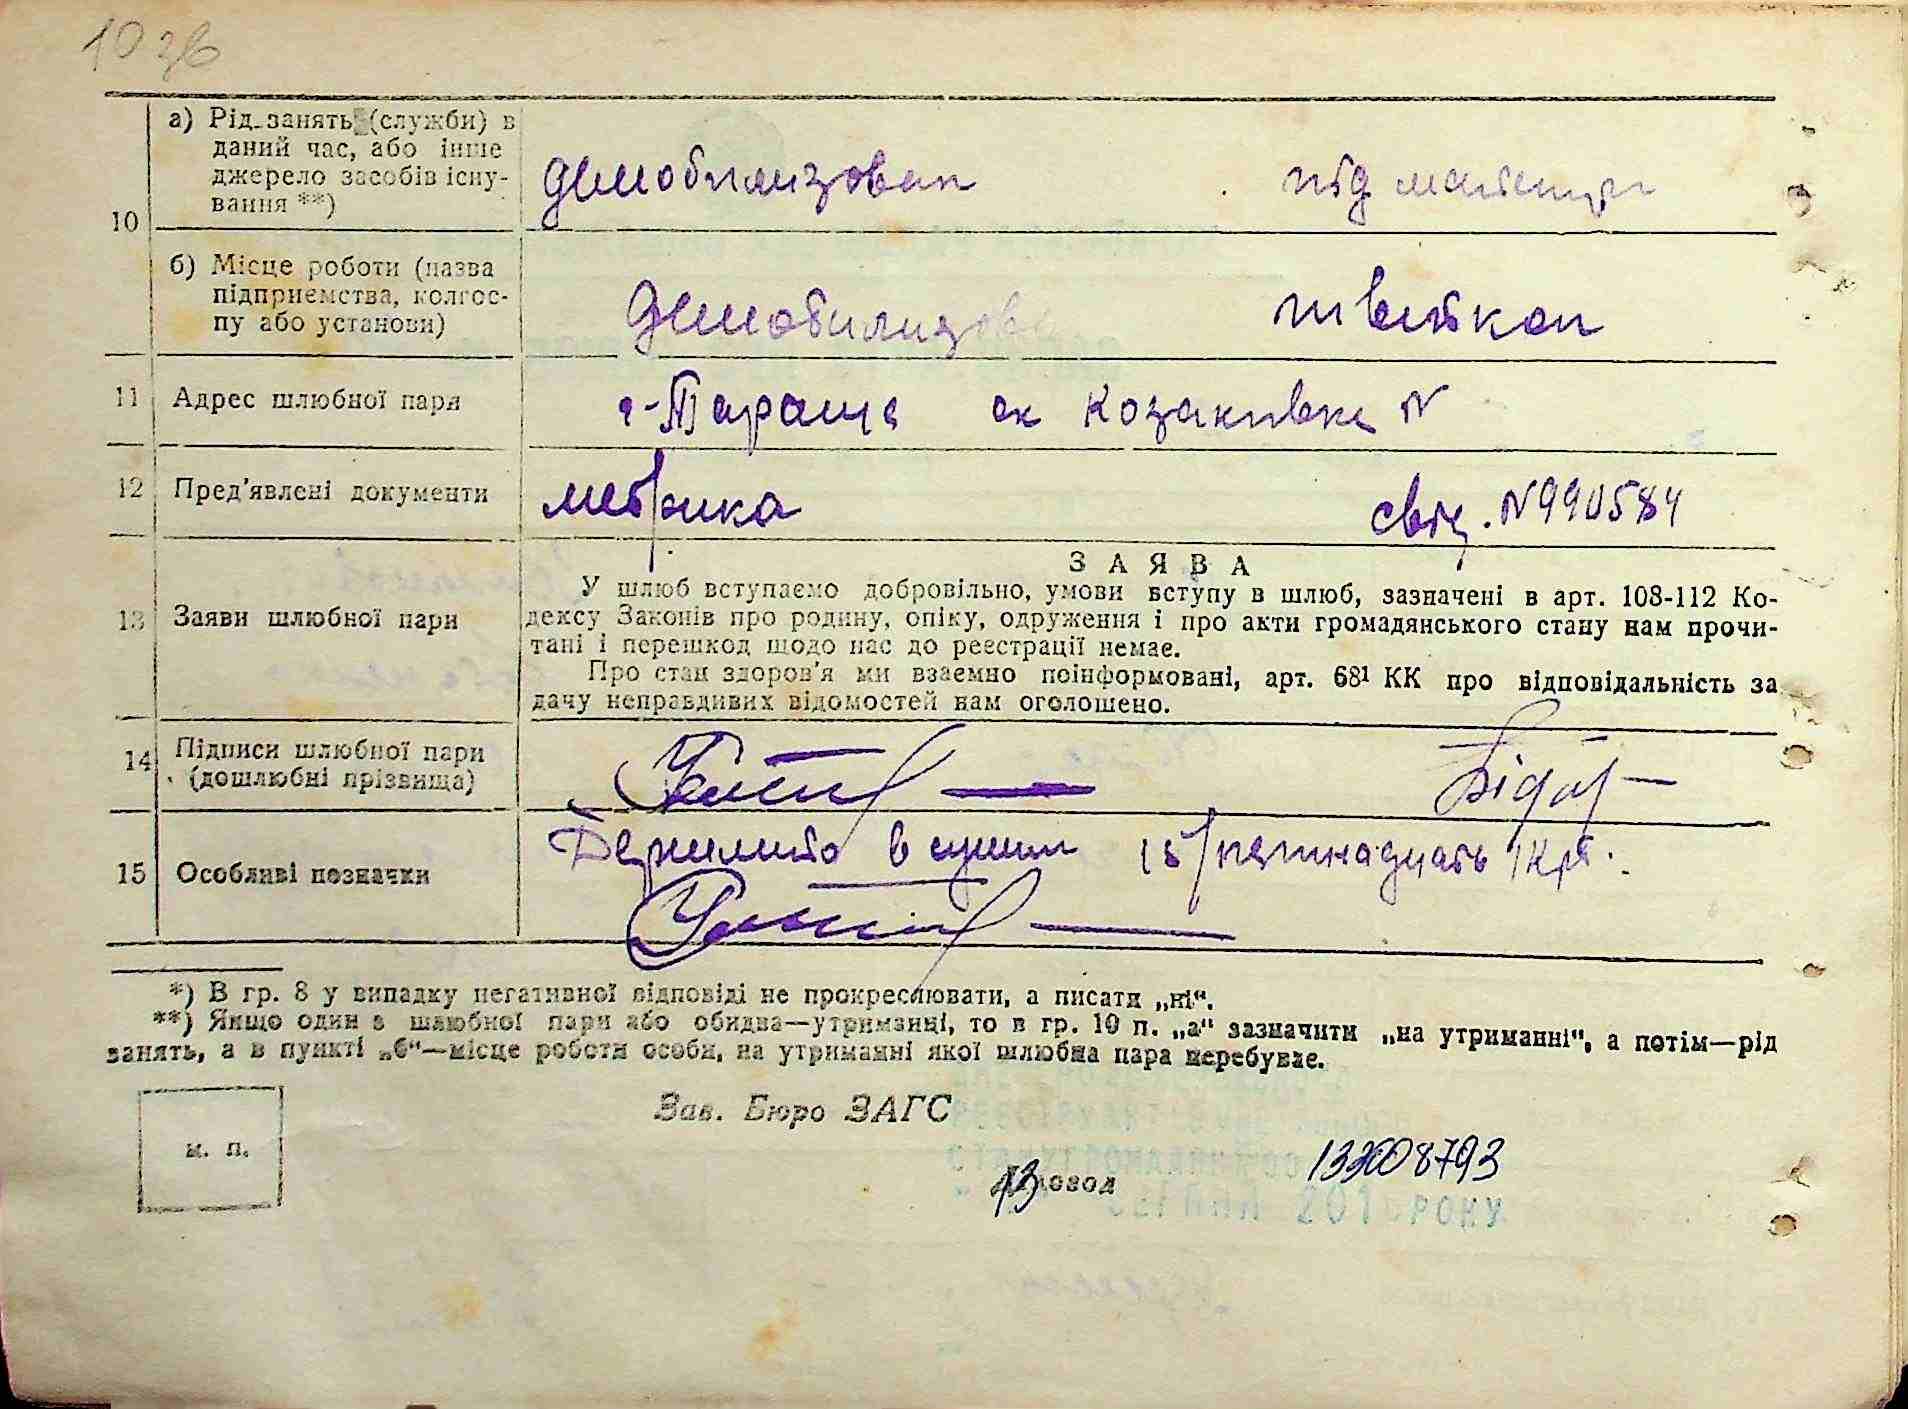 10 зв
а) Рід занять (служби) в
даний час, або інше
джерело засобів існу-
вання **)
10
демобилизован
під
б) Місце роботи (назва
підприємства, колгос-
пу або установи)
демобилизова
швейкоп
11 Адрес шлюбної пари
г-Тараща ок Козаківка N
12 Пред'явлені документи
метрика
свід. N990584
ЗАЯВА
13 Заяви шлюбної пари
У шлюб вступаємо добровільно, умови вступу в шлюб, зазначені в арт. 108-112 Ко-
дексу Законів про родину, опіку, одруження і про акти громадянського стану нам прочи-
тані і перешкод щодо нас до реєстрації немає.
Про стан здоров'я ми взаємно поінформовані, арт. 68¹ КК про відповідальність за
дачу неправдивих відомостей нам оголошено.
14 Підписи шлюбної пари
(дошлюбні прізвища)
15 Особливі позначки
Держмито в сумі 15/пятнадцать/крб.
*) В гр. 8 у випадку негативної відповіді не прокреслювати, а писати „ні“.
**) Якщо один з шлюбної пари або обидва—утриманці, то в гр. 10 п. „а“ зазначити „на утриманні“, а потім—рід
занять, а в пункті „б“—місце роботи особи, на утриманні якої шлюбна пара перебуває.
Зав. Бюро ЗАГС
м. п.
Діловод
СЕРПНЯ 201 РОКУ